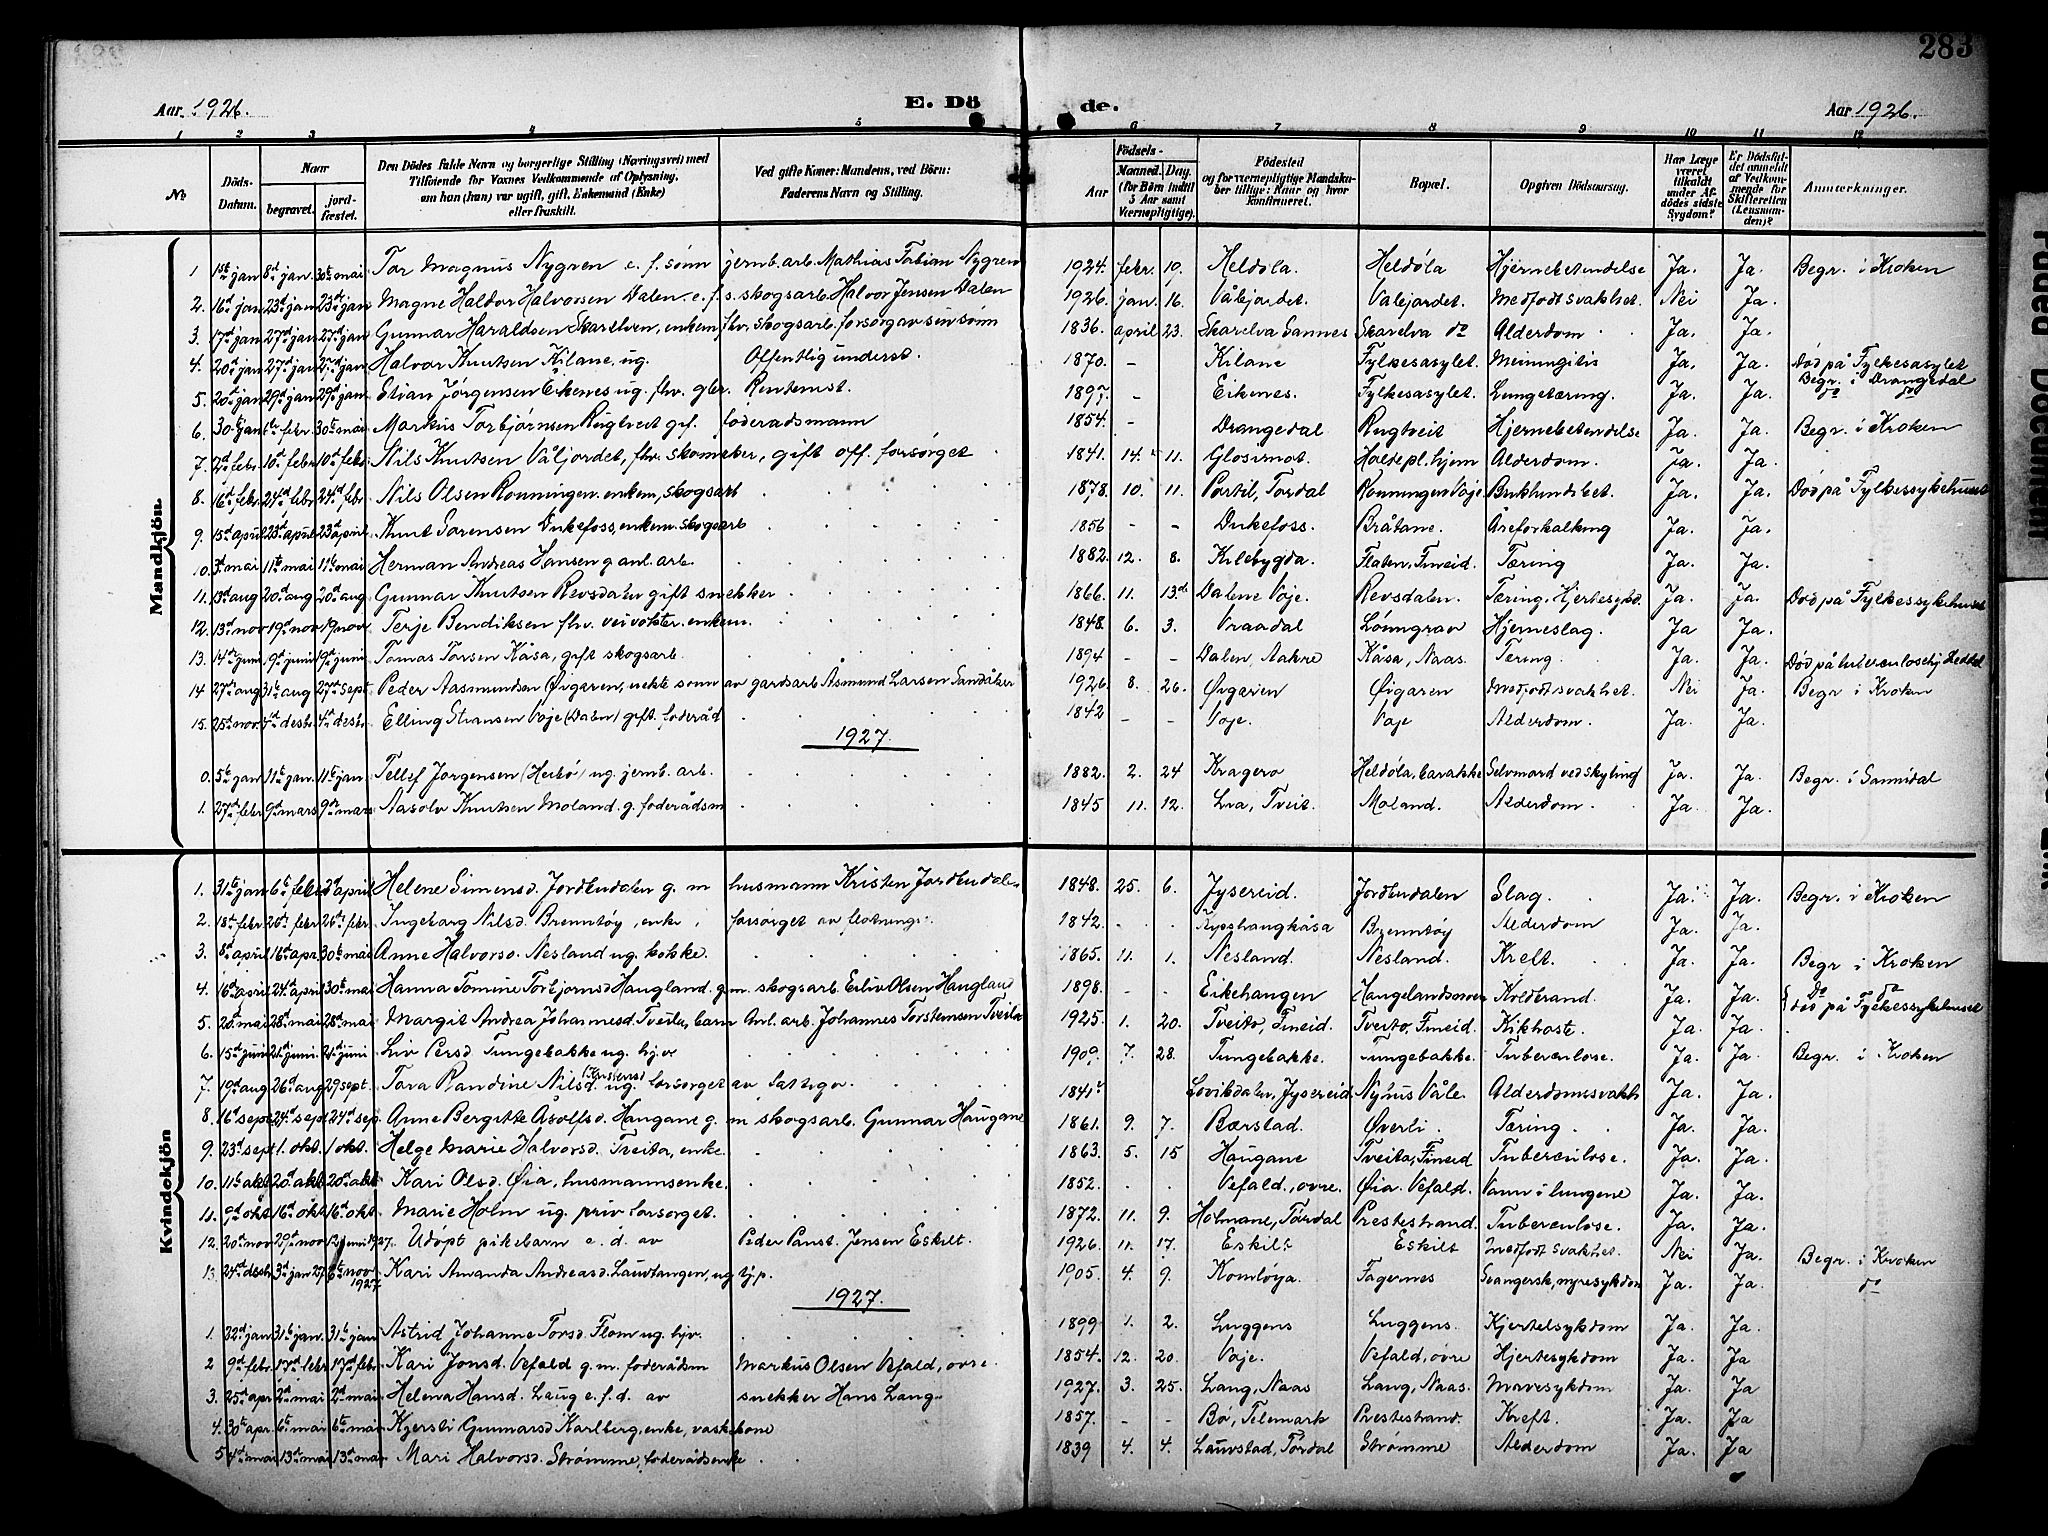 283
Aar 1926. E. Dö de. Aar 1926.
1 2 3 4 5 6 7 8 9 10 11 12
No. Döds-Datum. Naar begravet. jordfæstet. Den Dödes fulde Navn og borgerlige Stilling (Næringsvei) med Tilføiende for Voxnes Vedkommende af Oplysning, om han (hun) var ugift, gift, Enkemand (Enke) eller fraskilt. Ved gifte Koner: Mandens, ved Börn: Faderens Navn og Stilling. Födsels- Aar Maaned. Dag. (for Börn indtil 5 Aar samt Værnepligtige). Födested og for værnepligtige Mandskaber tillige: Naar og hvor konfirmeret. Bopæl. Opgiven Dödsaarsag. Har Læge været tilkaldt under Afdödes sidste Sygdom? Er Dödsfaldet anmeldt af Vedkommende for Skifteretten (Lensmanden)? Anmærkninger.
Mandkjön.
1 1ste jan 8d jan. 30te mai Tor Magnus Nygren e. f. sønn jernb.arb. Mathias Fabian Nygren 1924. febr. 19. Heldøla. Heldøla Hjernebetendelse Ja. Ja. Begr. i Kroken
2. 16d jan 23d jan 23d jan Magne Haldor Halvorsen Dalen e. f. s. skogsarb. Halvor Jensen Dalen 1926. jan. 16. Våljordet. Våljordet. Medfødt svakhet. Nei Ja.
3. 17d jan 27d jan 27d jan Gunnar Haraldsen Skarelven, enkem. fhv. skogsarb. forsørg av sin sønn 1836. april 23. Skarelva Sannes Skarelva do Alderdom. Ja. Ja.
4. 20d jan 27d jan 27d jan Halvor Knutsen Kilane, ug. Offentlig underst. 1870. - Kilane Fylkesasylet. Meiningitis Ja. Ja. Død på Fylkesasylet Begr. i Drangedal
5. 20d jan 29d jan 29d jan Stian Jørgensen Eikenes ug. fhv. gbr. Rentenist. 1897 - Eikenes. Fylkesasylet. Lungetæring. Ja. Ja. do do
6. 30te jan 6te febr. 30te mai Markus Torbjørnsen Rugtveit g. føderadsmann 1854. - Drangedal Rugtveit Hjernebetendelse Ja. Ja. Begr. i Kroken
7. 2d febr 10d febr 10d febr Nils Knutsen Våljordet, fhv. skomaker, gift off. forsørget 1841. 14. 11. Glosimot. Holtepl.hjem Alderdom. Ja. Ja.
8. 16d febr. 24d febr 24d febr Nils Olsen Rønningen enkem, skogsarb 1878. 10. 11. Portil, Tørdal Rønningen Voje Ja. Ja. Død på Fylkessykehuset
9. 15d april 23d april 23d april Knut Sørensen Dukefoss, enkem. skogsarb 1856 - - Dukefoss. Bråtane. Åreforkalking Ja. Ja.
10. 3d mai 11te mai 11te mai Herman Andreas Hansen g anl. arb. 1882. 12. 8. Kilebygda. Flaten, Fineid. Tæring Ja. Ja.
11. 13d aug 20d aug 20d aug Gunnar Knutsen Revsdalen gift snekker 1866. 11. 13de Dalene Voje. Revsdalen. Tæring, Hjertesykd. Ja. Ja. Død på Fylkessykehuset
12. 13d nov 19d nov 19 nov Terje Bendiksen fhv. veivokter. enkem. 1848. 6. 3. Vraadal Lønngrav Hjerneslag. Ja Ja.
13. 14d juni 19d juni 19d juni Tomas Torsen Kåsa, gift skogsarb. 1894 - - Dalen, Aakre Kåsa, Naas. Tæring. Ja. Ja. Død på tuberculosehj.
14 27d aug 31te aug 27d sept Peder Aasmundsen Øigaren, uekte sønn av gardsarb. Åsmund Larsen Sandåker 1926. 8. 26. Øigaren Øigaren Medfødt svakhet. Nei Ja. Begr. i Kroken
15. 25d nov. 4d desbr. 4d desbr. Elling Stiansen Voje (Dalen) gift. føderåd 1842 - - Voje. Voje Alderdom. Ja. Ja.
1927.
0. 5te jan 11te jan. 11te jan. Tellef Jørgensen (Heibø) ug. jernb. arb. 1882. 2. 24 Kragerø Heldøla, barakke Selvmord ved skyting Ja. Ja. Begr. i Sannidal
1. 27d febr 9d mars 9d mars Aasolv Knutsen Moland. g. føderådsm 1845 11. 12. Lia, Tveit. Moland. Alderdom. Ja. Ja.
Kvindekjön
1. 31te jan 6te febr 3d april Helene Simensd. Jordbudalen g. m husmann Kristen Jordbudalen 1848. 25. 6. Jysereid. Jordbudalen Slag. Ja. Ja. Begr. i Kroken
2. 18d febr 26d febr 26d febr. Ingeborg Nilsd. Brenntøy, enke, forsørget av 1842. Brenntøy Alderdom Ja. Ja.
3. 8d april 16d apr. 30te mai Anne Halvorsd. Nesland ug. kokke. 1865. 11. 1. Nesland. Nesland. Kreft. Ja. Ja. Begr i Kroken
4. 16d april 24d april 30te mai Hanna Tomine Torbjørnsd Haugland. g. m. skogsarb Eiliv Olsen Haugland 1898. - - Eikehaugen Koldbrand. Ja. Ja. do do død på Fylkessykehuset
5. 20d mai 28d mai 28d mai Margit Andrea Johannesd. Tveita, barn Anl. arb. Johannes Torstensen Tveita 1925. 1. 20. Tveito, Fineid. Tveito, Fineid. Kikhoste. Ja. Ja.
6. 15d juni 21d juni. 21d juni Liv Persd Tungebakke ug. hj.v 1909. 7. 28. Tungebakke. Tungebakke. Tuberculose. Ja. Ja. Begr. i Kroken
7. 19d aug 26d aug 29 sept. Tora Randine Nilsd. ug. forsørget av fattigv. 1841 Lovikdalen, Jysereid Nyhus Våle. Alderdomssvakh Ja. Ja.
8. 16d sept 24d sept. 24d sep. Anne Bergitte Åsolfsd. Haugane g. m skogsarb. Gunnar Haugane 1861. 9. 7. Bærstad. Øverli. Tæring. Ja. Ja.
9. 23d sept 1. okt. 1 okt. Helge Marie Halvorsd. Tveita, enke. 1863. 5. 15 Haugane Tveita, Fineid Tuberculose. Ja. Ja.
10. 11te okt 20d okt 20d okt Kari Olsd. Øia, husmannsenke. 1852. Vefald, øvre. Øia. Vefald. Vann i lungene Ja. Ja.
11. 9d okt 16d okt 16d okt Marie Holm ug. priv. forsørget. 1872. 11. 9. Holmane, Tørdal Prestestrand. Tuberculose. Ja. Ja.
12. 20d nov 29d nov 12 juni 1927. Udøpt pikebarn e. d. av Peder Jensen Eskilt. 1926. 11. 17. Eskilt Eskilt Medfødt svakhet. Nei Ja. Begr. i Kroken
13. 24d desbr 3d jan 27 6te nov 1927 Kari Amanda Andreasd. Lauvtangen, ug hj.p. 1905. 4. 9. Komløya. Fagernes Svangersk, nyresykdom Ja. Ja do
1927.
1. 22d jan 31te jan. 31te jan Astrid Johanne Torsd. Flom ug. hjv. 1899. 1. 2. Luggens Luggens. Kjertelsykdom Ja. Ja.
2 9d febr. 17d febr 17d febr. Kari Jonsd. Vefald g. m. føderådsm Markus Olsen Vefald, øvre. 1854. 12. 20. Voje. Vefald, øvre Hjertesykdom Ja. Ja
3. 25d apr 2d mai 2d mai. Helena Hansd. Laug e. f. d. av snekker Hans Laug 1927. 3. 25. Laug, Naas Laug, Naas. Mavesykdom Ja. Ja
4. 30te apr. 6te mai 6te mai Kjersti Gunnarsd Karlberg, enke, vaskekone 1857. - - Bø, Telemark Prestestrand. Kreft. Ja. Ja
5 4d mai 13d mai 13d mai Mari Halvorsd. Strømme, føderådsenke 1839 4. 4. Lauvstad, Tørdal Strømme Alderdom Ja. Ja
Faded Document